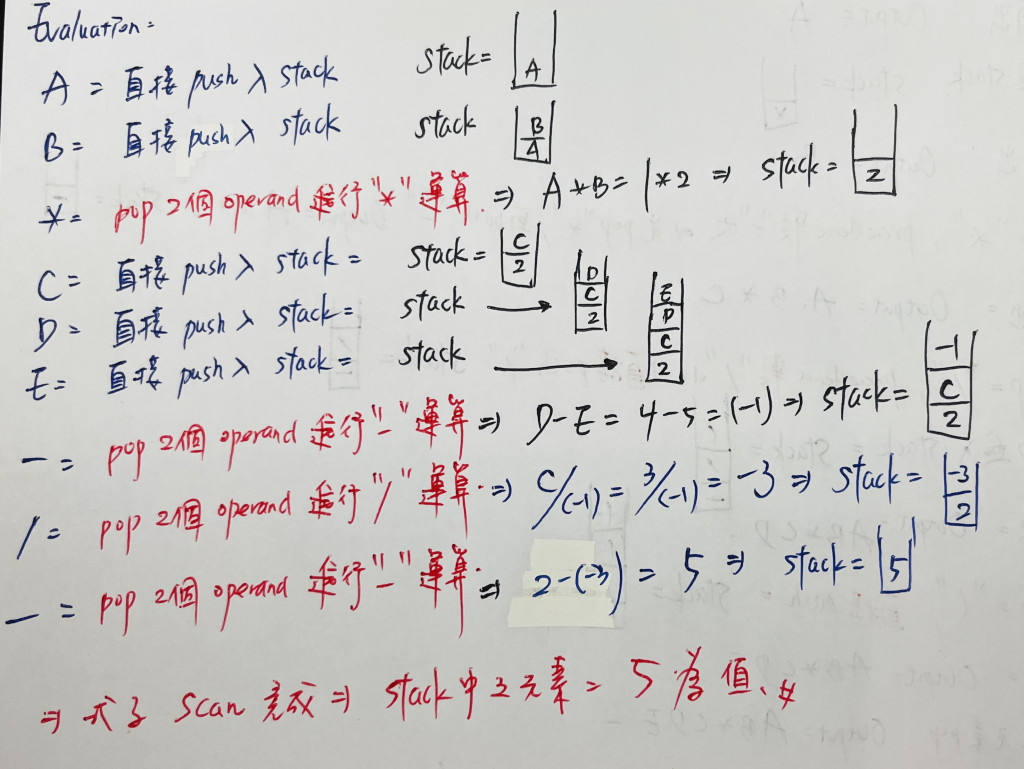 Evaluation =
A = 直接 push 入 stack stack= A
B= 直接 push 入 stack stack B A
*= pop 2個 operand 進行 "*" 運算. ⇒ A*B= 1*2 ⇒ stack= 2
C= 直接 push 入 stack = stack= C 2
D= 直接 push 入 stack= stack → D C 2
E= 直接 push 入 stack= stack → E D C 2
- = pop 2個 operand 進行 "-" 運算 ⇒ D-E = 4-5 = (-1) ⇒ stack= -1 C 2
/= pop 2個 operand 進行 "/" 運算. ⇒ C/(-1) = 3/(-1) = -3 ⇒ stack= -3 2
- = pop 2個 operand 進行 "-" 運算. ⇒ 2-(-3) = 5 ⇒ stack= 5
⇒ 式子 Scan 完成 ⇒ stack中之元素 = 5 為值. #